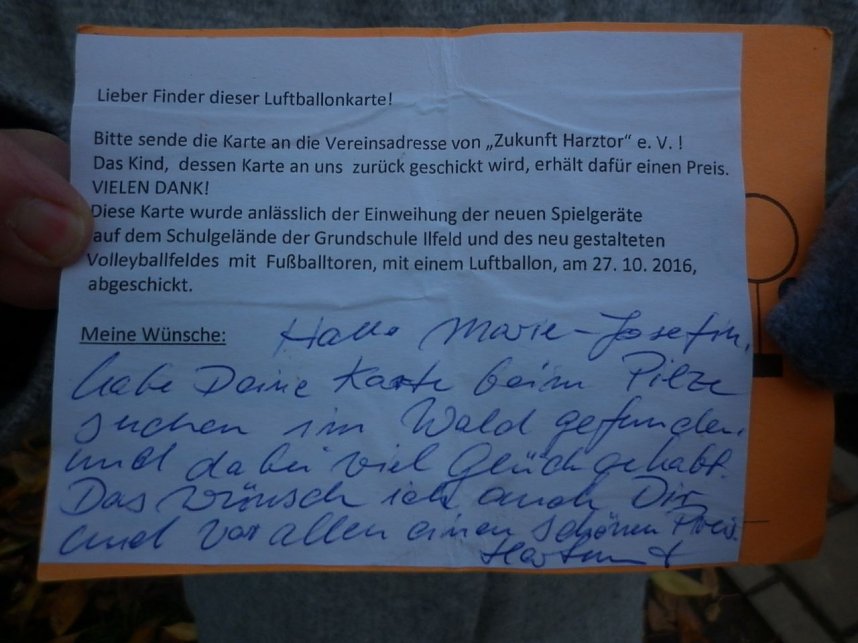 Lieber Finder dieser Luftballonkarte!
Bitte sende die Karte an die Vereinsadresse von „Zukunft Harztor" e. V. !
Das Kind, dessen Karte an uns zurück geschickt wird, erhält dafür einen Preis.
VIELEN DANK!
Diese Karte wurde anlässlich der Einweihung der neuen Spielgeräte
auf dem Schulgelände der Grundschule Ilfeld und des neu gestalteten
Volleyballfeldes mit Fußballtoren, mit einem Luftballon, am 27. 10. 2016,
abgeschickt.
Meine Wünsche: Hallo Marie-Josefin,
habe Deine Karte beim Pilze
suchen im Wald gefunden,
und dabei viel Glück gehabt.
Das wünsch ich auch Dir
und vor allen einen schönen Preis.
Hartmut